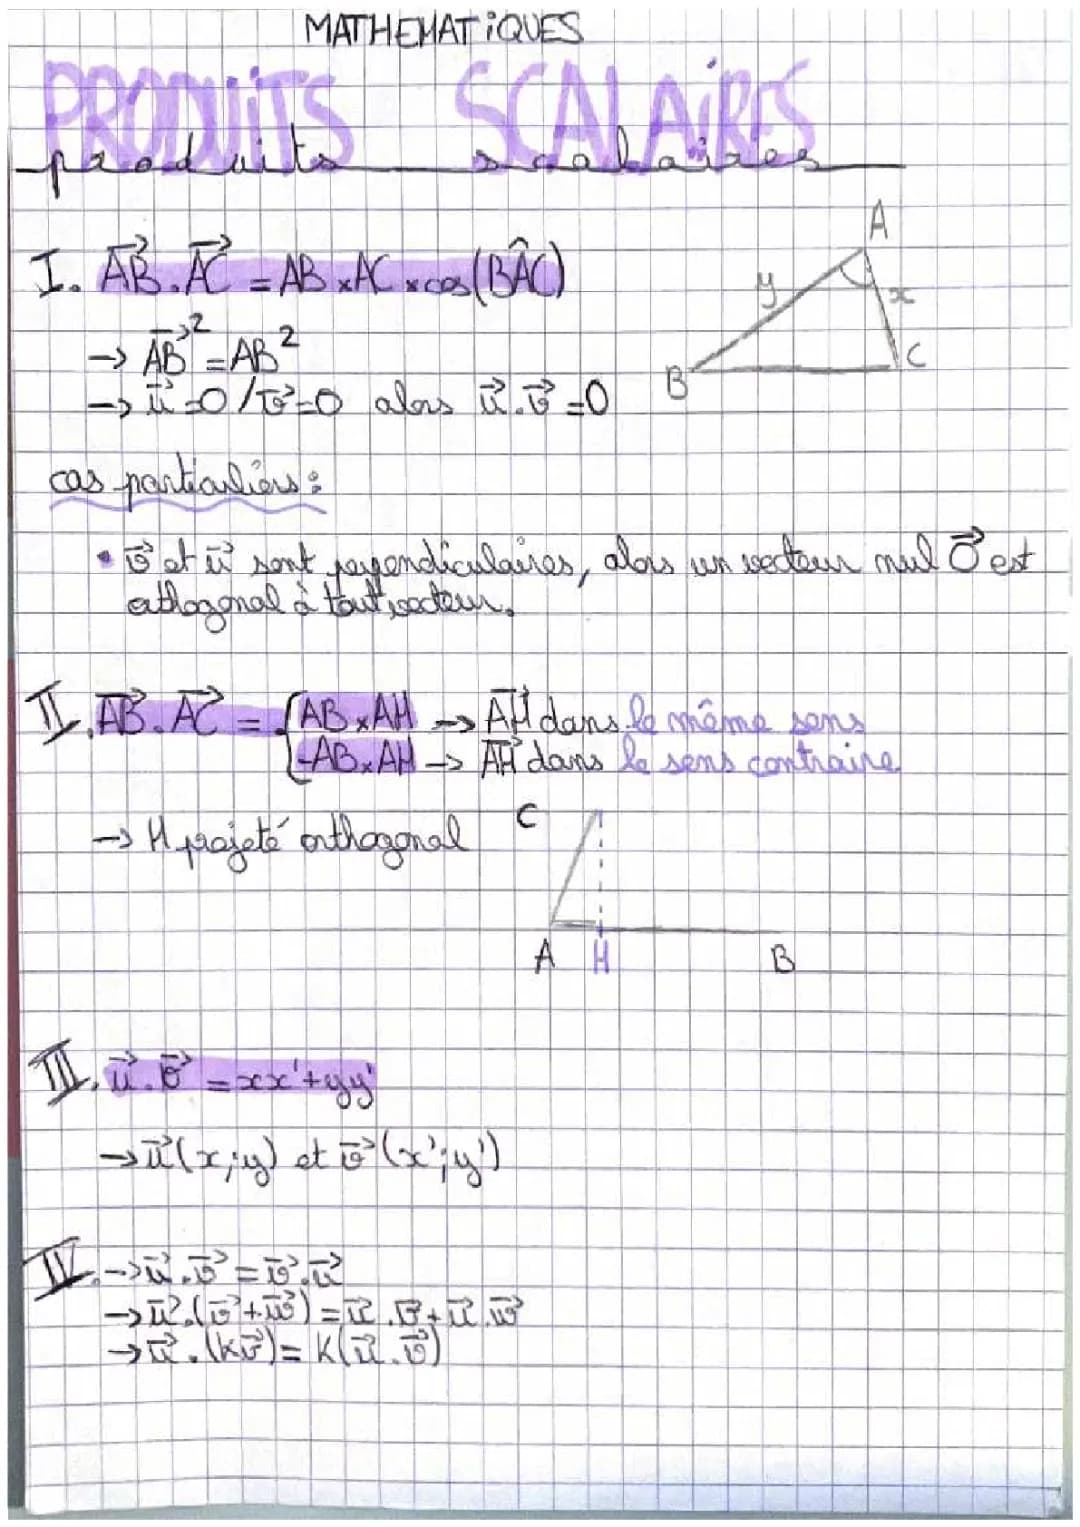 MATHEMATiQUES
PRODUiTS SCALAiRES
produits scalaires
A
I. AB⃗.AC⃗ = AB×AC×cos(BÂC)
y
x
→ AB⃗² = AB²
B
C
→ u⃗=0/v⃗=0 alors u⃗.v⃗=0
cas particuliers:
• v⃗ et u⃗ sont perpendiculaires, alors un vecteur nul O⃗ est
orthogonal à tout vecteur.
II. AB⃗.AC⃗ = { AB×AH → AH⃗ dans le même sens
-AB×AH → AH⃗ dans le sens contraire
C
→ H projeté orthogonal
A H B
III. u⃗.v⃗ = xx'+yy'
→ u⃗(x;y) et v⃗(x';y')
IV. → u⃗.v⃗ = v⃗.u⃗
→ u⃗.(v⃗+w⃗) = u⃗.v⃗+u⃗.w⃗
→ u⃗.(kv⃗) = k(u⃗.v⃗)